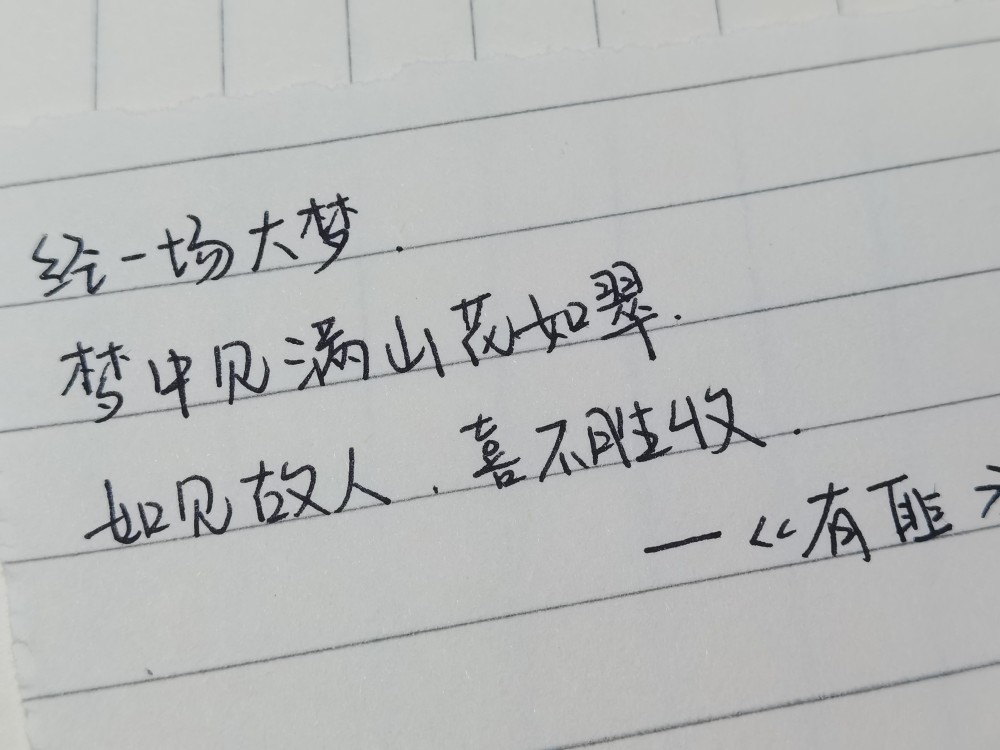 经一场大梦.
梦中见满山花如翠.
如见故人.喜不胜收.
—《有匪》